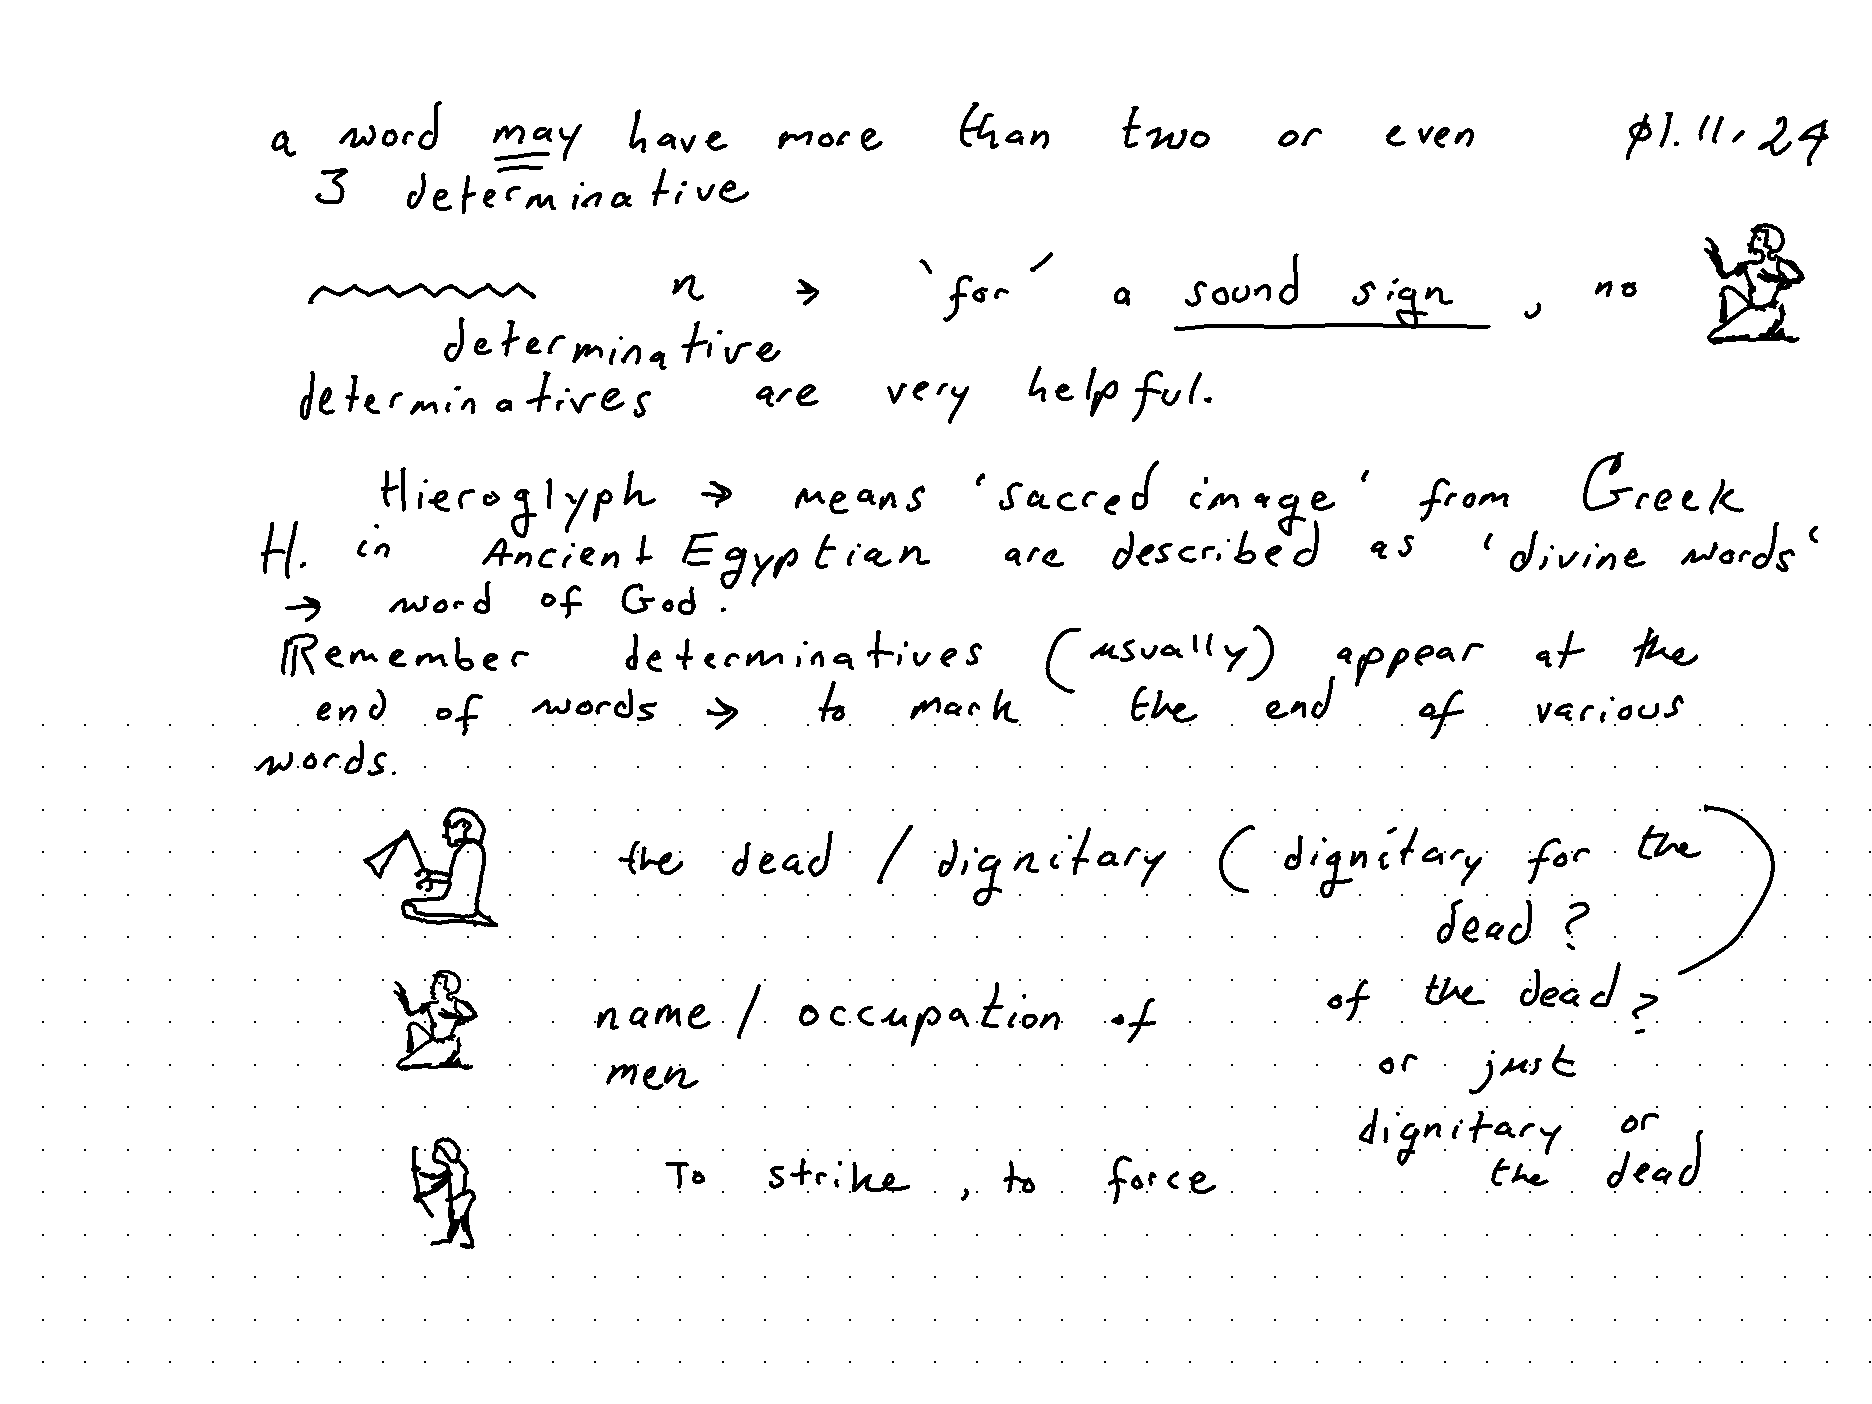 a word may have more than two or even 01.11.24
3 determinative
n → `for´ a sound sign, no
determinative
determinatives are very helpful.
Hieroglyph → means 'sacred image' from Greek
H. in Ancient Egyptian are described as 'divine words'
→ word of God.
Remember determinatives (usually) appear at the
end of words → to mark the end of various
words.
the dead / dignitary (dignitary for the
dead?
of the dead?
or just
dignitary or
the dead)
name / occupation of
men
To strike, to force